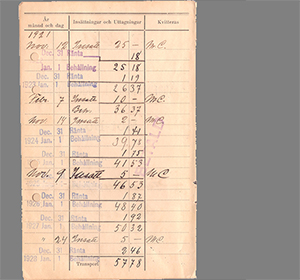 År månad och dag Insättningar och Uttagningar Kvitteras
1921
Nov. 12 Insatt 25 — MC
Dec. 31 Ränta 18
Jan. 1 Behållning 25 18
Dec. 31 Ränta 1 19
Jan. 1 Behållning 26 37
Febr. 7 Insatt 10 — MC
36 37
Nov. 14 Insatt 2 — MC
Dec. 31 Ränta 1 41
1924 Jan. 1 Behållning 39 78
Dec. 31 Ränta 1 75
Jan. 1 Behållning 41 53
Nov. 9 Insatt 5 — MC
46 53
Dec. 31 Ränta 1 87
1926 Jan. 1 Behållning 48 40
Dec. 31 Ränta 1 92
Jan. 1 Behållning 50 32
" 24 Insatt 5 — MC
Dec. 31 Ränta 2 46
1928 Jan. 1 Behållning 57 78
Transport